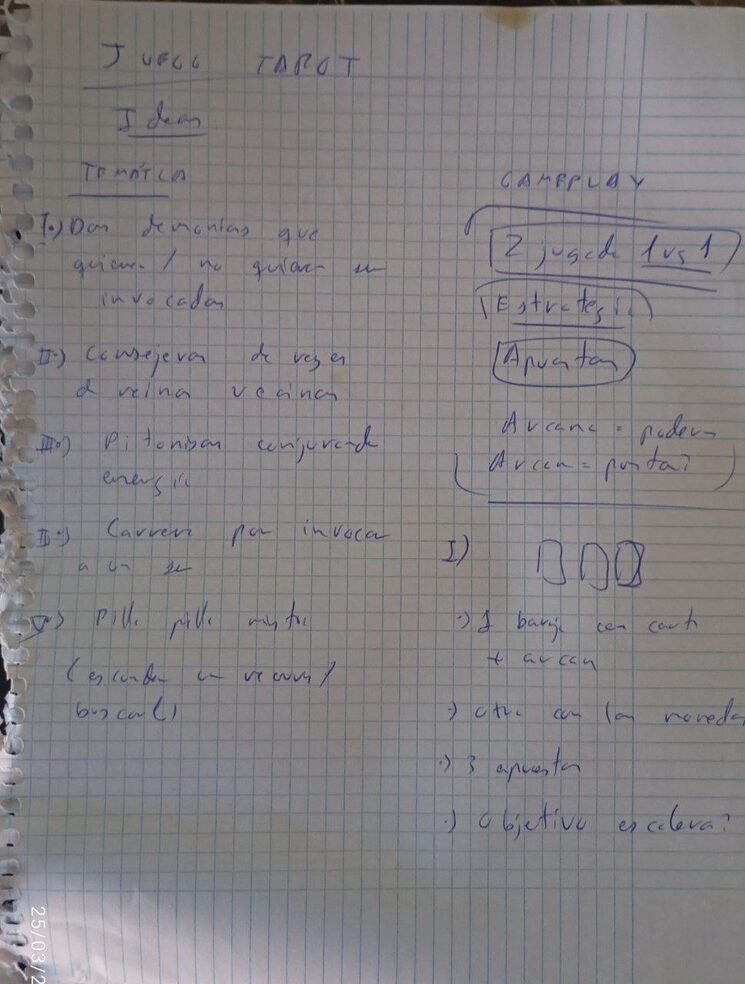 JUEGO TAROT
Ideas
TEMÁTICA
I.) Dos demonios que
quieren / no quieren ser
invocados
II.) Consejeros de reyes
d reinos vecinos
III.) Pitonisas conjurando
energía
II.) Carrera por invocar
a un ser
V.) Pilla pilla
(esconder un recurso /
buscarlo)
GAMEPLAY
2 jugado 1 vs 1
Estrategia
Apuestas
Arcano = poderes
(Arcan = puntos?)
I)
.) 1 baraja con cart
+ arcan
.) otra con las moneda
.) 3 apuestas
.) Objetivo escalera?
25/03/2